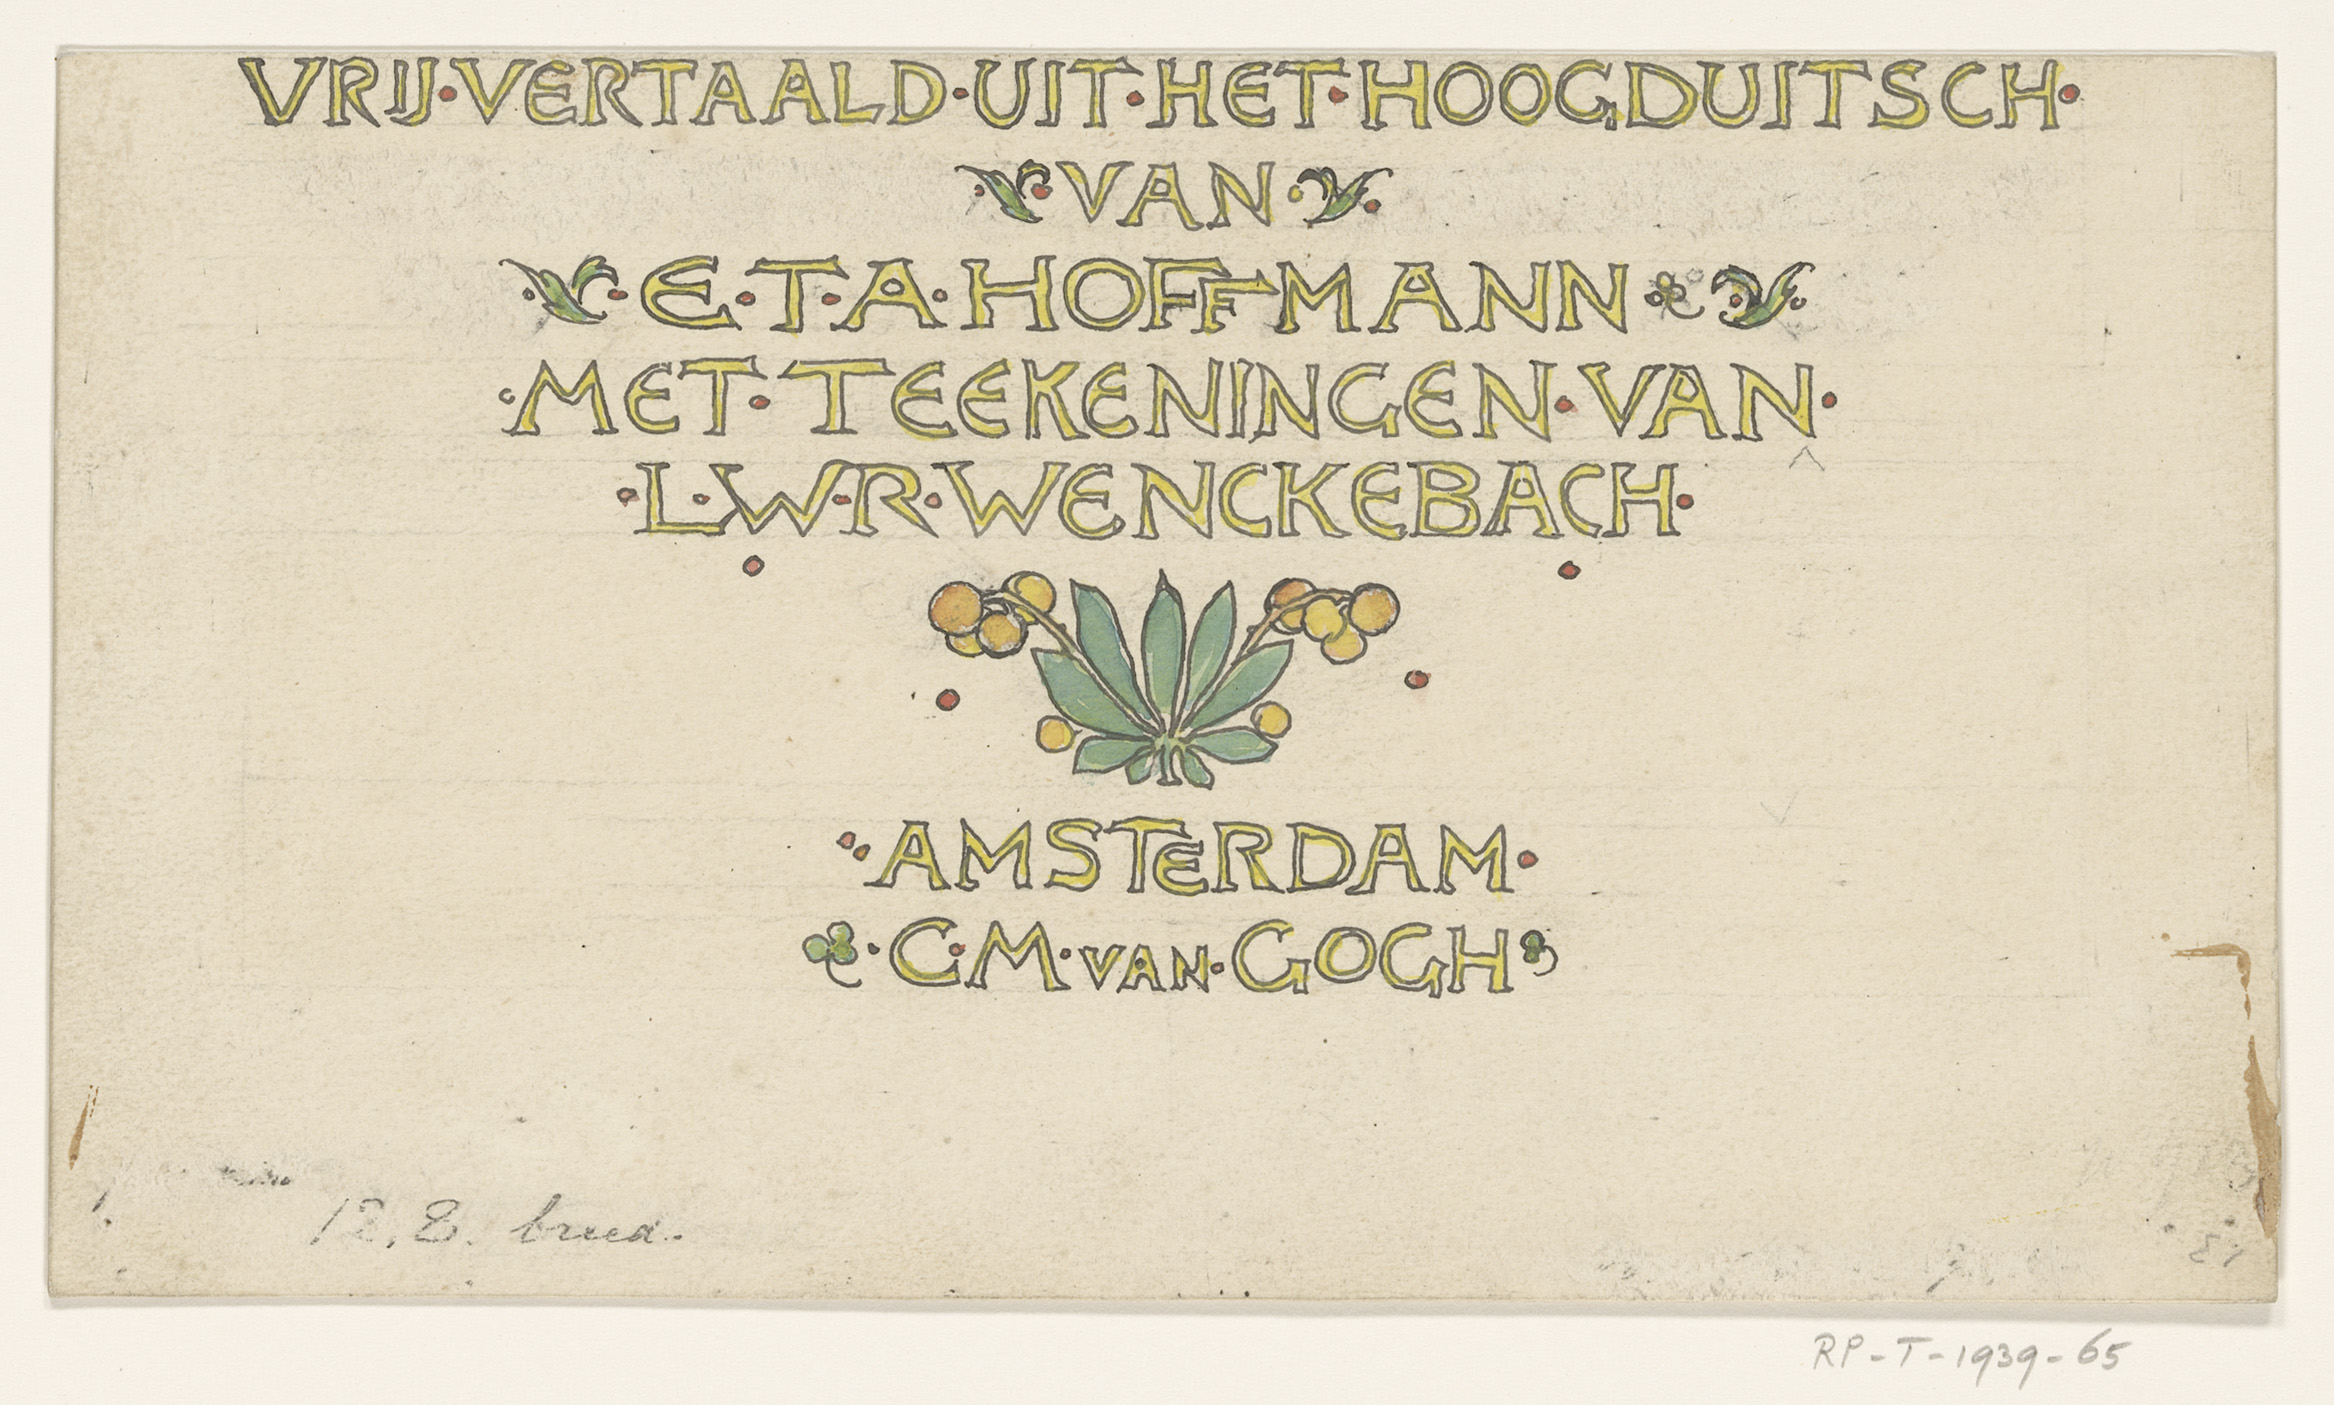 VRIJ·VERTAALD·UIT·HET·HOOGDUITSCH·
·VAN·
·E·T·A·HOFFMANN
·MET·TEEKENINGEN·VAN·
·L·W·R·WENCKEBACH·
·AMSTERDAM·
·C·M·VAN·GOGH
12.8. breed.
RP-T-1939-65